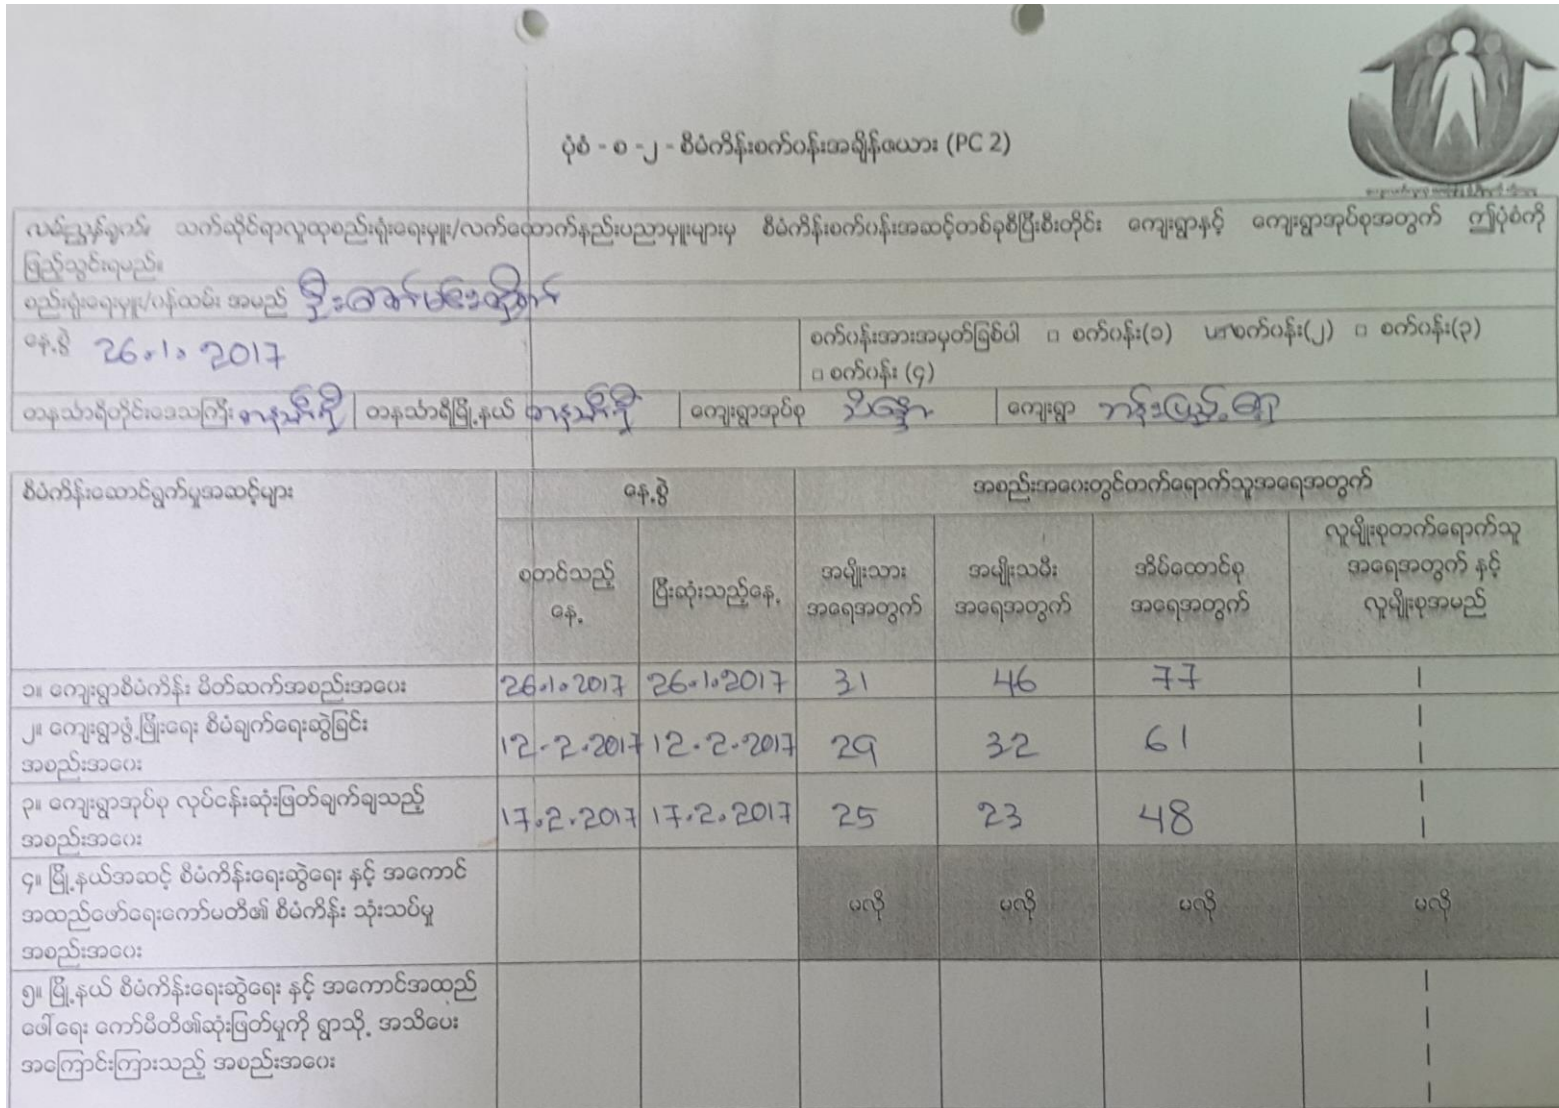 ပုံစံ - စ -၂ - စီမံကိန်းစက်ဝန်းအချိန်ဇယား (PC 2)
လမ်းညွှန်ချက်။ သက်ဆိုင်ရာလူထုစည်းရုံးရေးမှူး/လက်ထောက်နည်းပညာမှူးများမှ စီမံကိန်းစက်ဝန်းအဆင့်တစ်ခုစီပြီးစီးတိုင်း ကျေးရွာနှင့် ကျေးရွာအုပ်စုအတွက် ဤပုံစံကို
ဖြည့်သွင်းရမည်။
စည်းရုံးရေးမှူး/ဝန်ထမ်း အမည်
နေ့စွဲ 26.1.2017
စက်ဝန်းအားအမှတ်ခြစ်ပါ □ စက်ဝန်း(၁) စက်ဝန်း(၂) □ စက်ဝန်း(၃)
□ စက်ဝန်း (၄)
တနင်္သာရီတိုင်းဒေသကြီး တနင်္သာရီ တနင်္သာရီမြို့နယ် တနင်္သာရီ ကျေးရွာအုပ်စု ကျေးရွာ
စီမံကိန်းဆောင်ရွက်မှုအဆင့်များ
နေ့စွဲ
အစည်းအဝေးတွင်တက်ရောက်သူအရေအတွက်
စတင်သည့်
နေ့
ပြီးဆုံးသည့်နေ့
အမျိုးသား
အရေအတွက်
အမျိုးသမီး
အရေအတွက်
အိမ်ထောင်စု
အရေအတွက်
လူမျိုးစုတက်ရောက်သူ
အရေအတွက် နှင့်
လူမျိုးစုအမည်
၁။ ကျေးရွာစီမံကိန်း မိတ်ဆက်အစည်းအဝေး 26.1.2017 26.1.2017 31 46 77
၂။ ကျေးရွာဖွံ့ဖြိုးရေး စီမံချက်ရေးဆွဲခြင်း
အစည်းအဝေး 12.2.2017 12.2.2017 29 32 61
၃။ ကျေးရွာအုပ်စု လုပ်ငန်းဆုံးဖြတ်ချက်ချသည့်
အစည်းအဝေး 17.2.2017 17.2.2017 25 23 48
၄။ မြို့နယ်အဆင့် စီမံကိန်းရေးဆွဲရေး နှင့် အကောင်
အထည်ဖော်ရေးကော်မတီ၏ စီမံကိန်း သုံးသပ်မှု
အစည်းအဝေး
မလို မလို မလို မလို
၅။ မြို့နယ် စီမံကိန်းရေးဆွဲရေး နှင့် အကောင်အထည်
ဖေါ်ရေး ကော်မိတီ၏ဆုံးဖြတ်မှုကို ရွာသို့ အသိပေး
အကြောင်းကြားသည့် အစည်းအဝေး